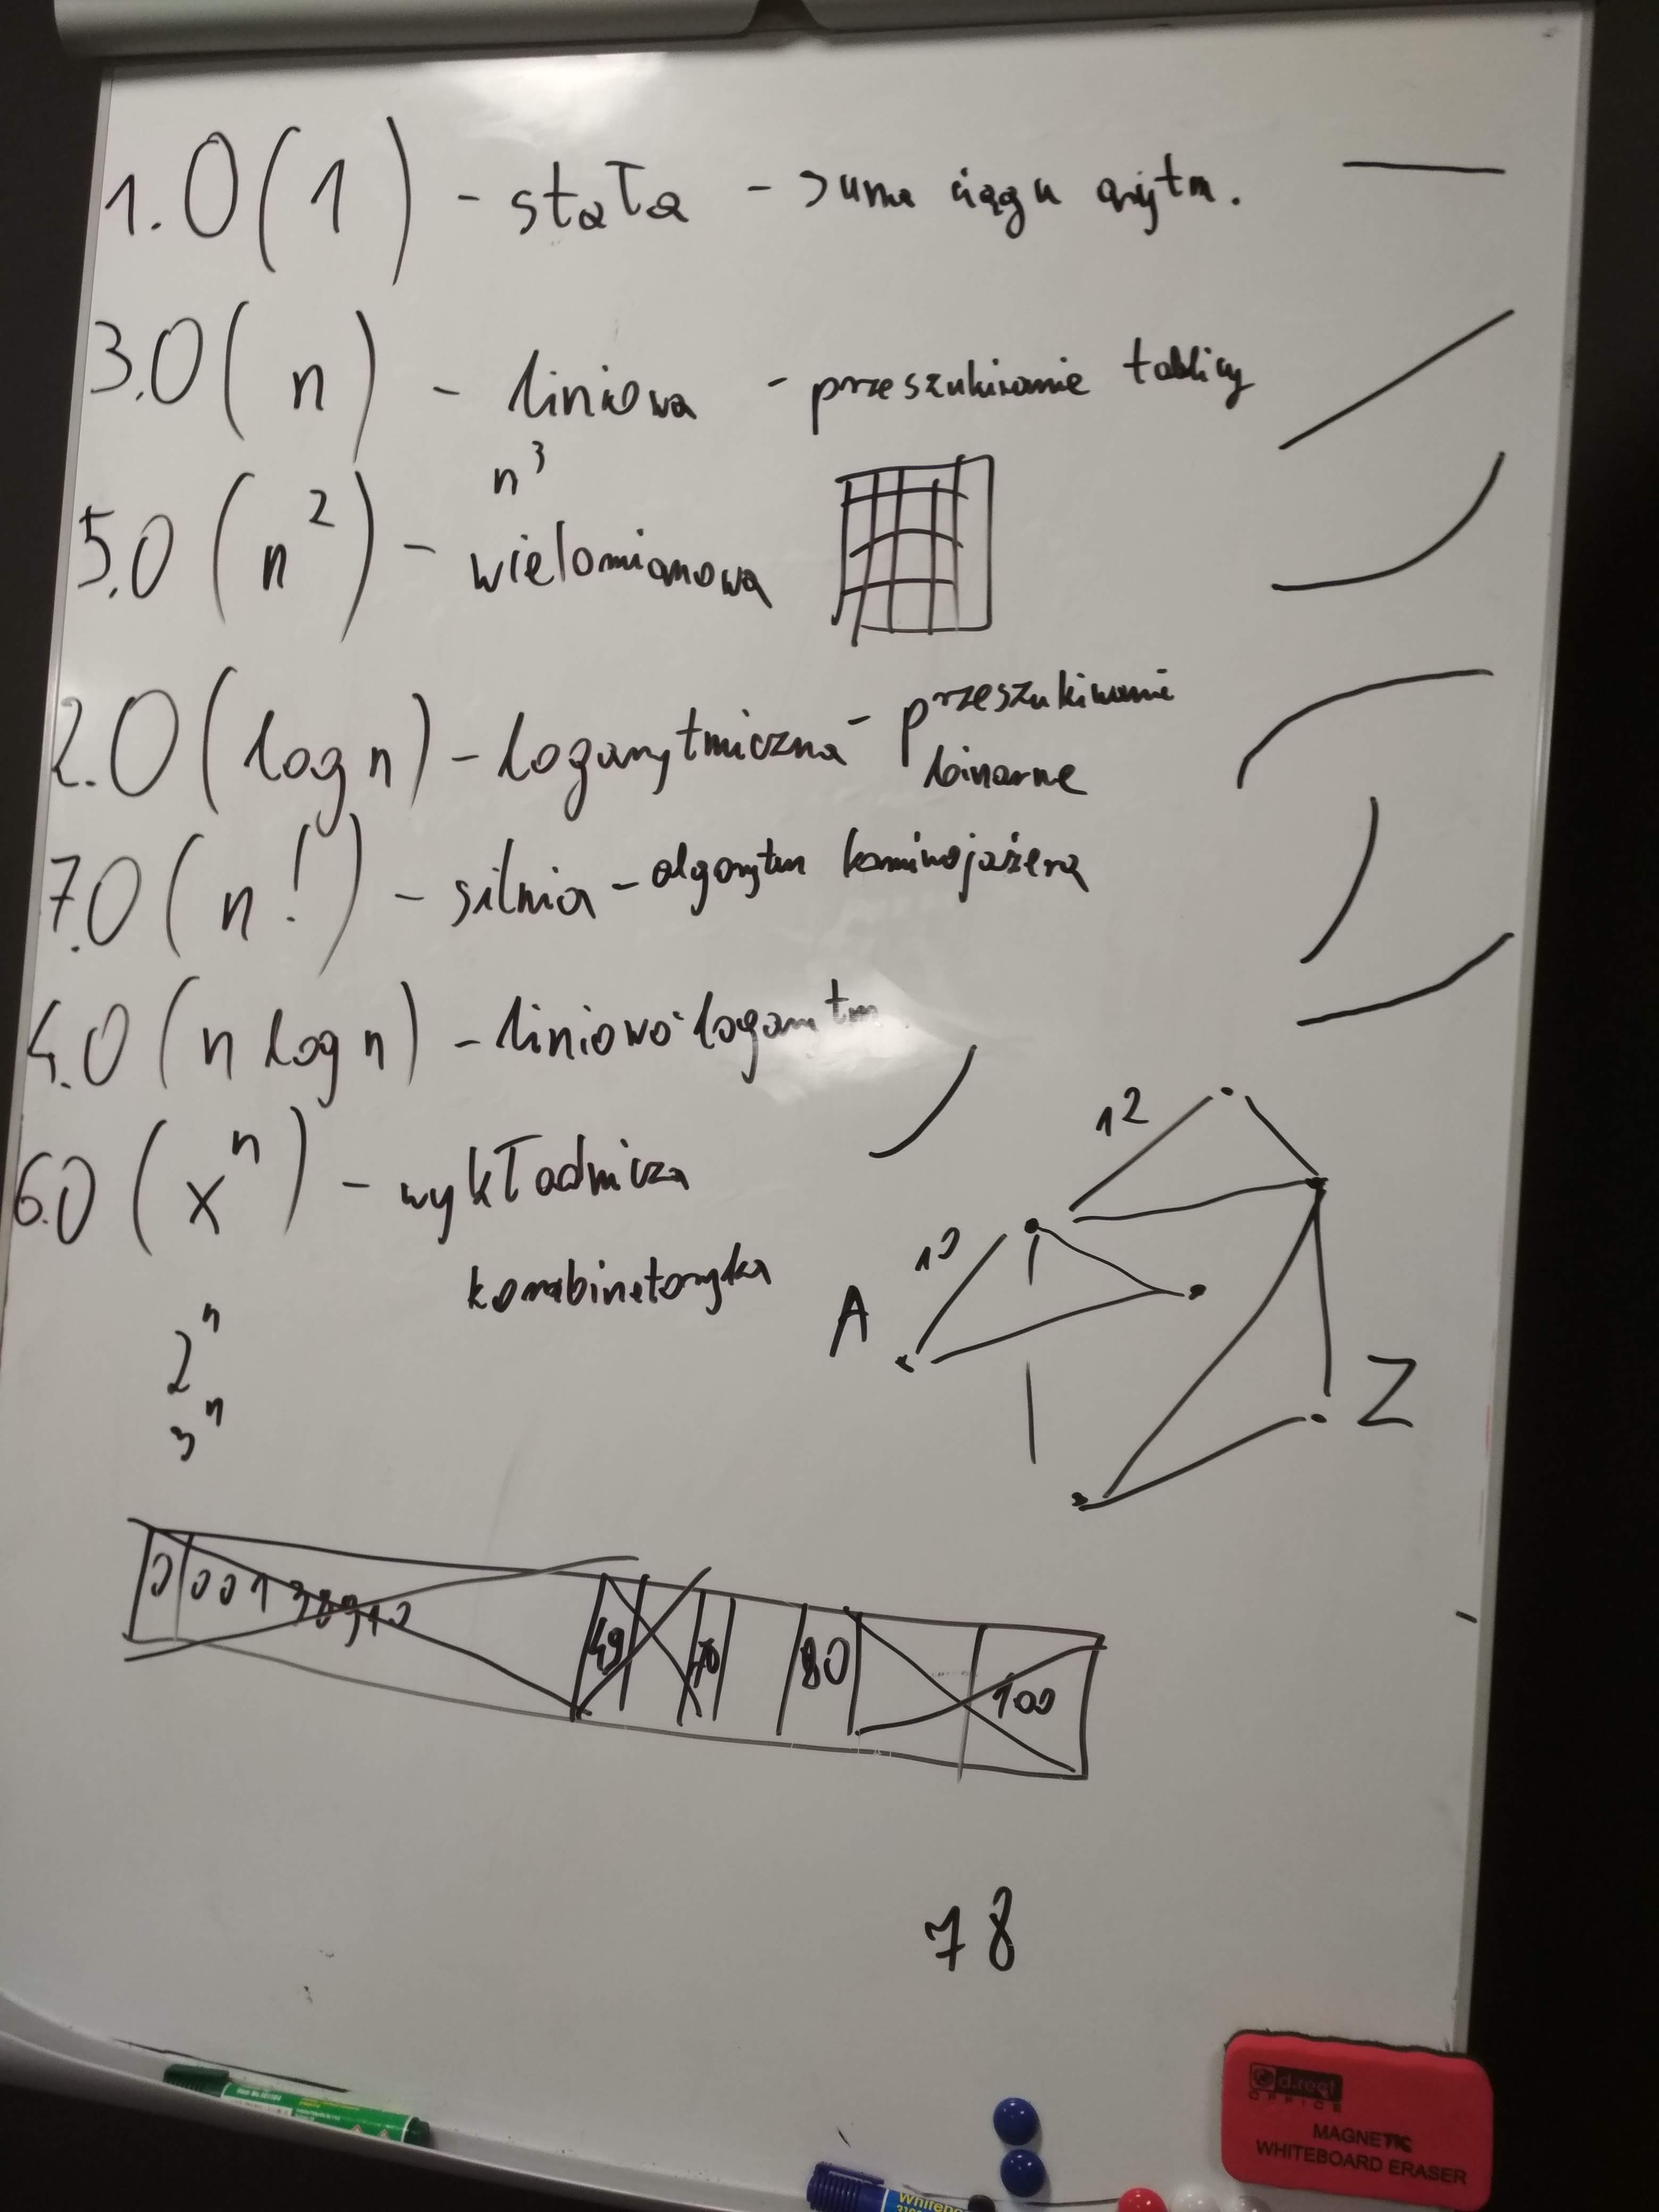 1. O(1) - stała - suma ciągu arytm.
3. O(n) - liniowa - przeszukiwanie tablicy
n³
5. O(n²) - wielomianowa
2. O(log n) - logarytmiczna - przeszukiwanie
binarne
7. O(n!) - silnia - algorytm komiwojażera
4. O(n log n) - liniowo-logarytm.
6. O(xⁿ) - wykładnicza
kombinatoryka
12
10
A
Z
2ⁿ
3ⁿ
0 0 0 1 3 8 9 10 49 70 80 100
78
d.rect
OFFICE
MAGNETIC
WHITEBOARD ERASER